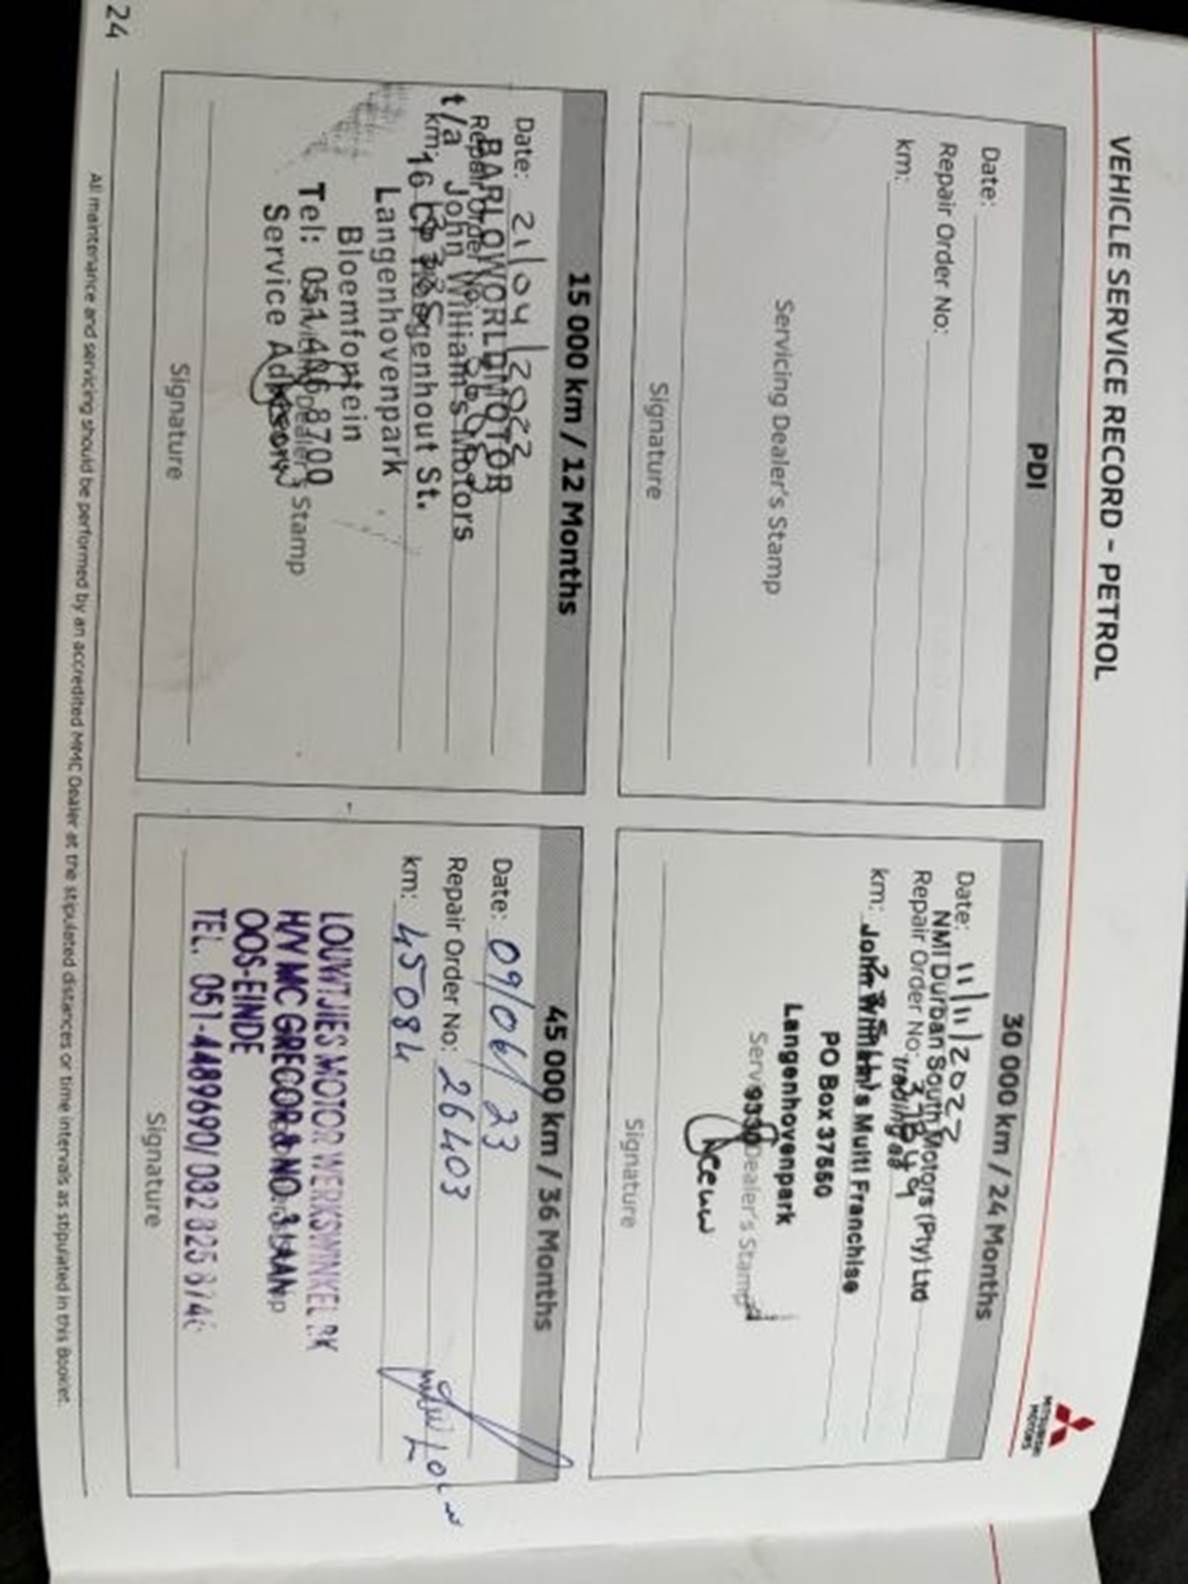 VEHICLE SERVICE RECORD - PETROL
MITSUBISHI
MOTORS
PDI
Date:
Repair Order No:
km:
Servicing Dealer's Stamp
Signature
30 000 km / 24 Months
Date: 11/11/2022
NMI Durban South Motors (Pty) Ltd
Repair Order No:
trading as
km:
John William's Multi Franchise
PO Box 37550
Langenhovenpark
9330
Servicing Dealer's Stamp
Signature
15 000 km / 12 Months
Date: 21/04/2022
BARLOWORLD MOTOR
Repair Order No:
t/a John William's Motors
km:
16 St.
Langenhovenpark
Bloemfontein
Tel: 051 406 8700
Servicing Dealer's Stamp
Service Advisor
Signature
45 000 km / 36 Months
Date: 09/06/23
Repair Order No: 26403
km: 45084
LOUWTJIES MOTOR WERKSWINKEL BK
H/V MC GREGOR & NO. 3 LAAN
OOS-EINDE
TEL. 051-4489690/
Signature
24
All maintenance and servicing should be performed by an accredited MMC Dealer at the stipulated distances or time intervals as stipulated in this Booklet.